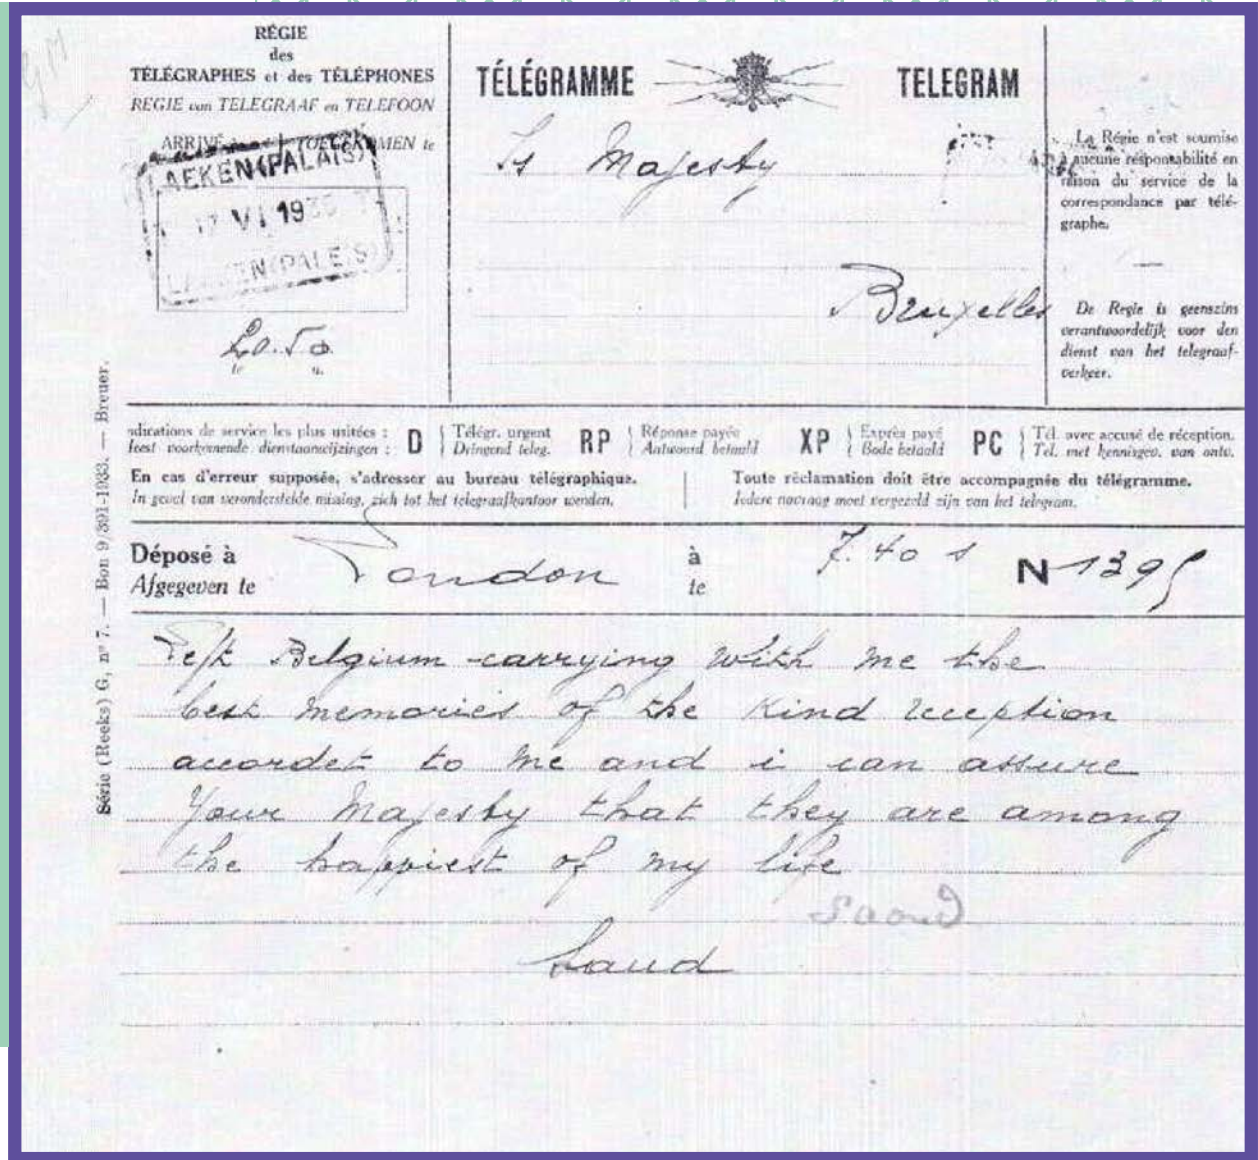 RÉGIE
des
TÉLÉGRAPHES et des TÉLÉPHONES
REGIE van TELEGRAAF en TELEFOON
ARRIVÉ TOEGEKOMEN te
LAEKEN (PALAIS)
17 VI 19
LAEKEN (PALEIS)
20.50
TÉLÉGRAMME TELEGRAM
Majesty
Bruxelles
La Régie n'est soumise
à aucune responsabilité en
raison du service de la
correspondance par télé-
graphe.
De Regie is geenszins
verantwoordelijk voor den
dienst van het telegraaf-
verkeer.
ndications de service les plus usitées :
leest voorkomende dienstaanwijzingen :
D
Télégr. urgent
Dringend teleg.
RP
Réponse payée
Antwoord betaald
XP
Exprès payé
Bode betaald
PC
Tél. avec accusé de réception.
Tel. met kennisgev. van ontv.
En cas d'erreur supposée, s'adresser au bureau télégraphique.
In geval van veronderstelde missing, zich tot het telegraafkantoor wenden.
Toute réclamation doit être accompagnée du télégramme.
Iedere navraag moet vergezeld zijn van het telegram.
Déposé à
Afgegeven te
London
à
te
7.40 s
N 1395
Left Belgium carrying with me the
best memories of the kind reception
accordet to me and i can assure
Your Majesty that they are among
the happiest of my life
Saoud
Saud
Série (Reeks) G, nº 7. — Bon 9/391-1933. — Breuer.